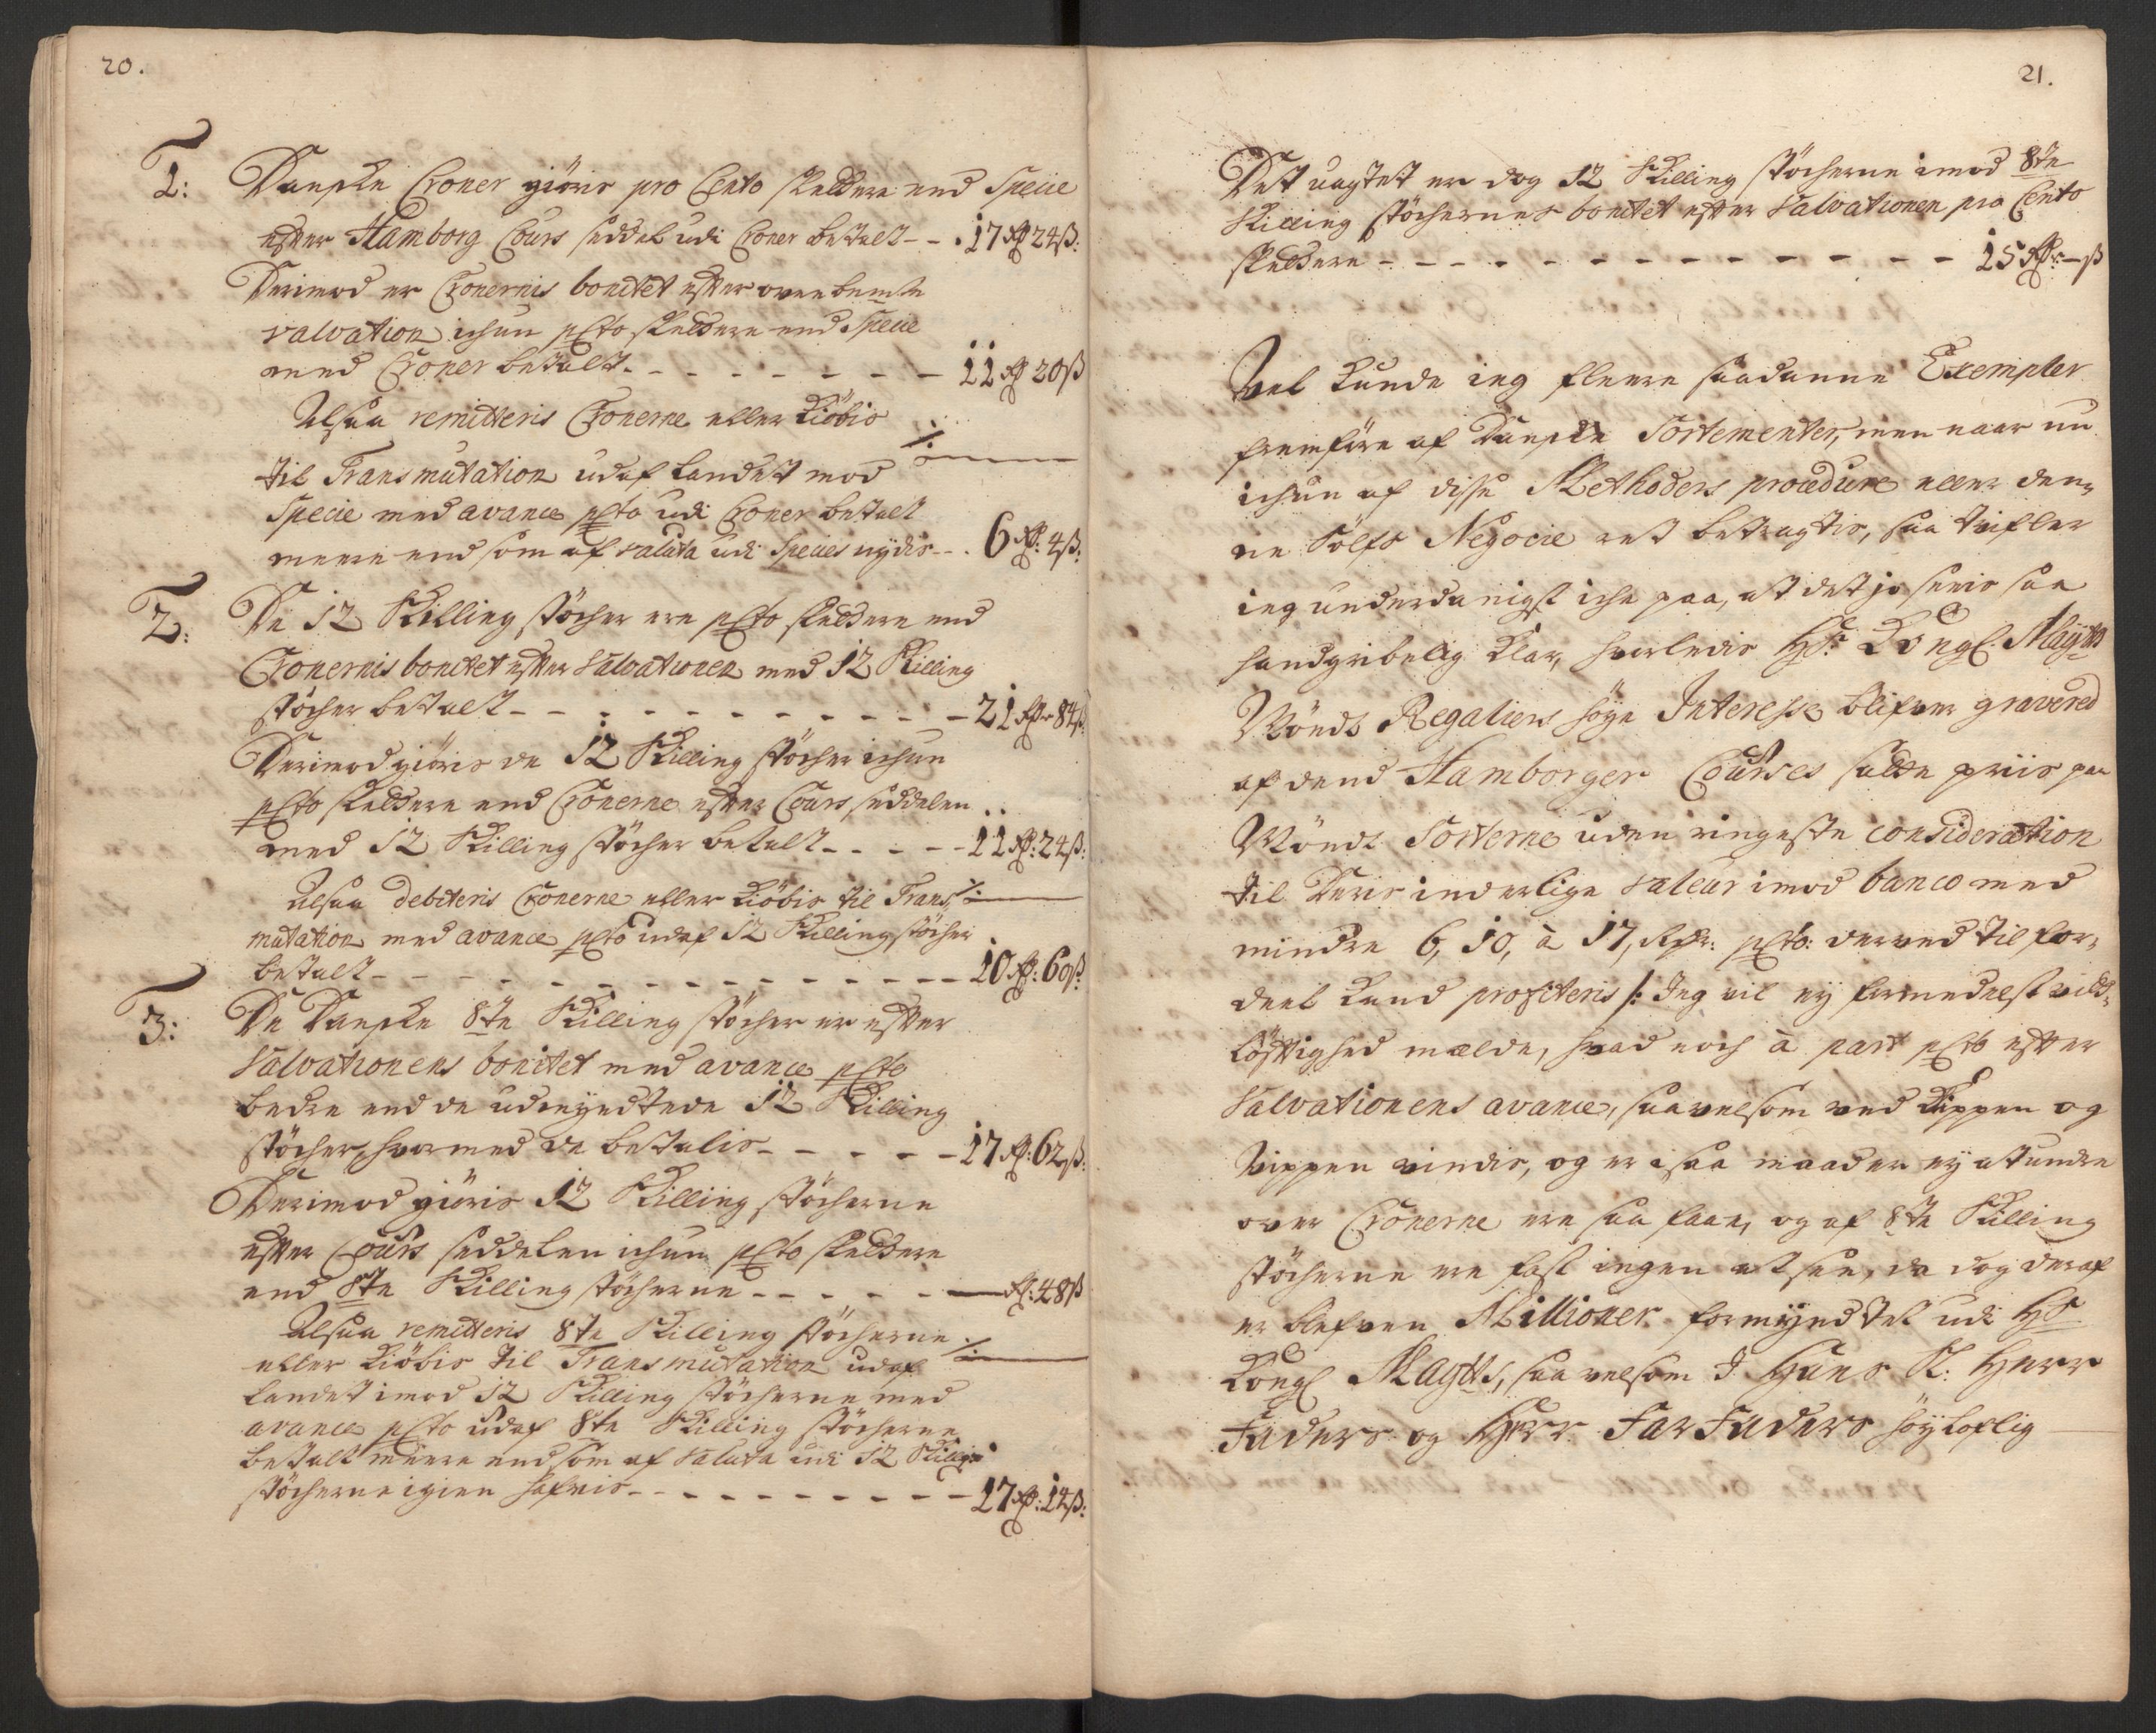 20.
1: Danske Croner giöris pro Cento slettere end Specie
efter Hamborg Cours seddel udi Croner betalt - - . 17 rdr 24 ß:
Derimod er Cronernis bonitet efter ovenbemte
valvation ichun pCto slettere end Specie
med Croner betalt - - - - - - - - 11 rdr 20 ß
Alsaa remitteris Cronerne eller kiöbis ./.
til Transmutation udaf Landet mod
Specie med avance pCto udi Croner betalt
meere end som af valuta udi Species nydis - - . 6 rdr: 4 ß:
2: De 12 Skilling stöcher ere pCto slettere end
Cronernis bonitet efter Valvationen med 12 Skilling
stöcher betalt - - - - - - - - - - - 21 rdr 84 ß
Derimod giöris de 12 Skilling stöcher ichun
pCto slettere end Cronerne efter Cours seddelen
med 12 Skilling stöcher betalt - - - - - 11 rdr: 24 ß:
Alsaa debiteris Cronerne eller kiöbis til Trans, ./.
mutation med avance pCto udaf 12 Skilling stöcher
betalt - - - - - - - - - - - - - - 10 rdr: 60 ß:
3: De Danske 8te Skilling stöcher er efter
Valvationens bonitet med avance pCto
bedre end de udmyndtede 12 Skilling
stöcher, hvormed de betalis - - - - - 17 rdr: 62 ß:
Derimod giöris 12 Skilling stöcherne
efter Cours seddelen ichun pCto slettere
end 8te Skilling stöcherne - - - - - — rdr: 48 ß
Alsaa remitteris 8te Skilling stöcherne ./.
eller kiöbis til Transmutation udaf
Landet imod 12 Skilling stöcherne med
avance pCto udaf 8te Skilling stöcherne
betalt meere end som af Valuta udi 12 Skilling
stöcherne igien hafvis - - - - - - - - - 17 rdr: 14 ß:
21.
Det uagtet er dog 12 Skilling stöcherne imod 8te
Skilling stöchernes bonitet efter Valvationen pro Cento
slettere - - - - - - - - - - - - - 15 rdr: - ß
Vel kunde ieg fleere saadanne Exempler
fremföre af Danske Sortementer, men naar nu
ichun af disse Methoders procedure eller den,
ne Sölfs Negocie ret betragtis, saa tvifler
ieg underdanigst iche paa, at det jo seeis saa
handgribelig klar, hvorledis Hs: Kongl: Mayts
Mönds Regaliers höye Interesse blifver graveret
af dend Hamborger Courses satte priis paa
Mönds Sorterne uden ringeste consideration
til Deris inderlige Valeur imod banco med
mindre 6, 10, à 17, Rdr: pCto: derved til for,
deel kand profiteris /: Jeg vil ey formedelst vidt,
löftighed melde, hvad noch à part pCto efter
Valvationens avance, saavelsom ved Kippen og
Vippen vindis, og er i saa maader ey at undre
over Cronerne ere saa faae, og af 8te Skilling
stöcherne ere fast ingen at see, da dog deraf
er blefven Millioner formyndtet udi Hs
Kongl Mayts, saavelsom I Hans K: Herr
Faders og Herr FarFaders höyloflig